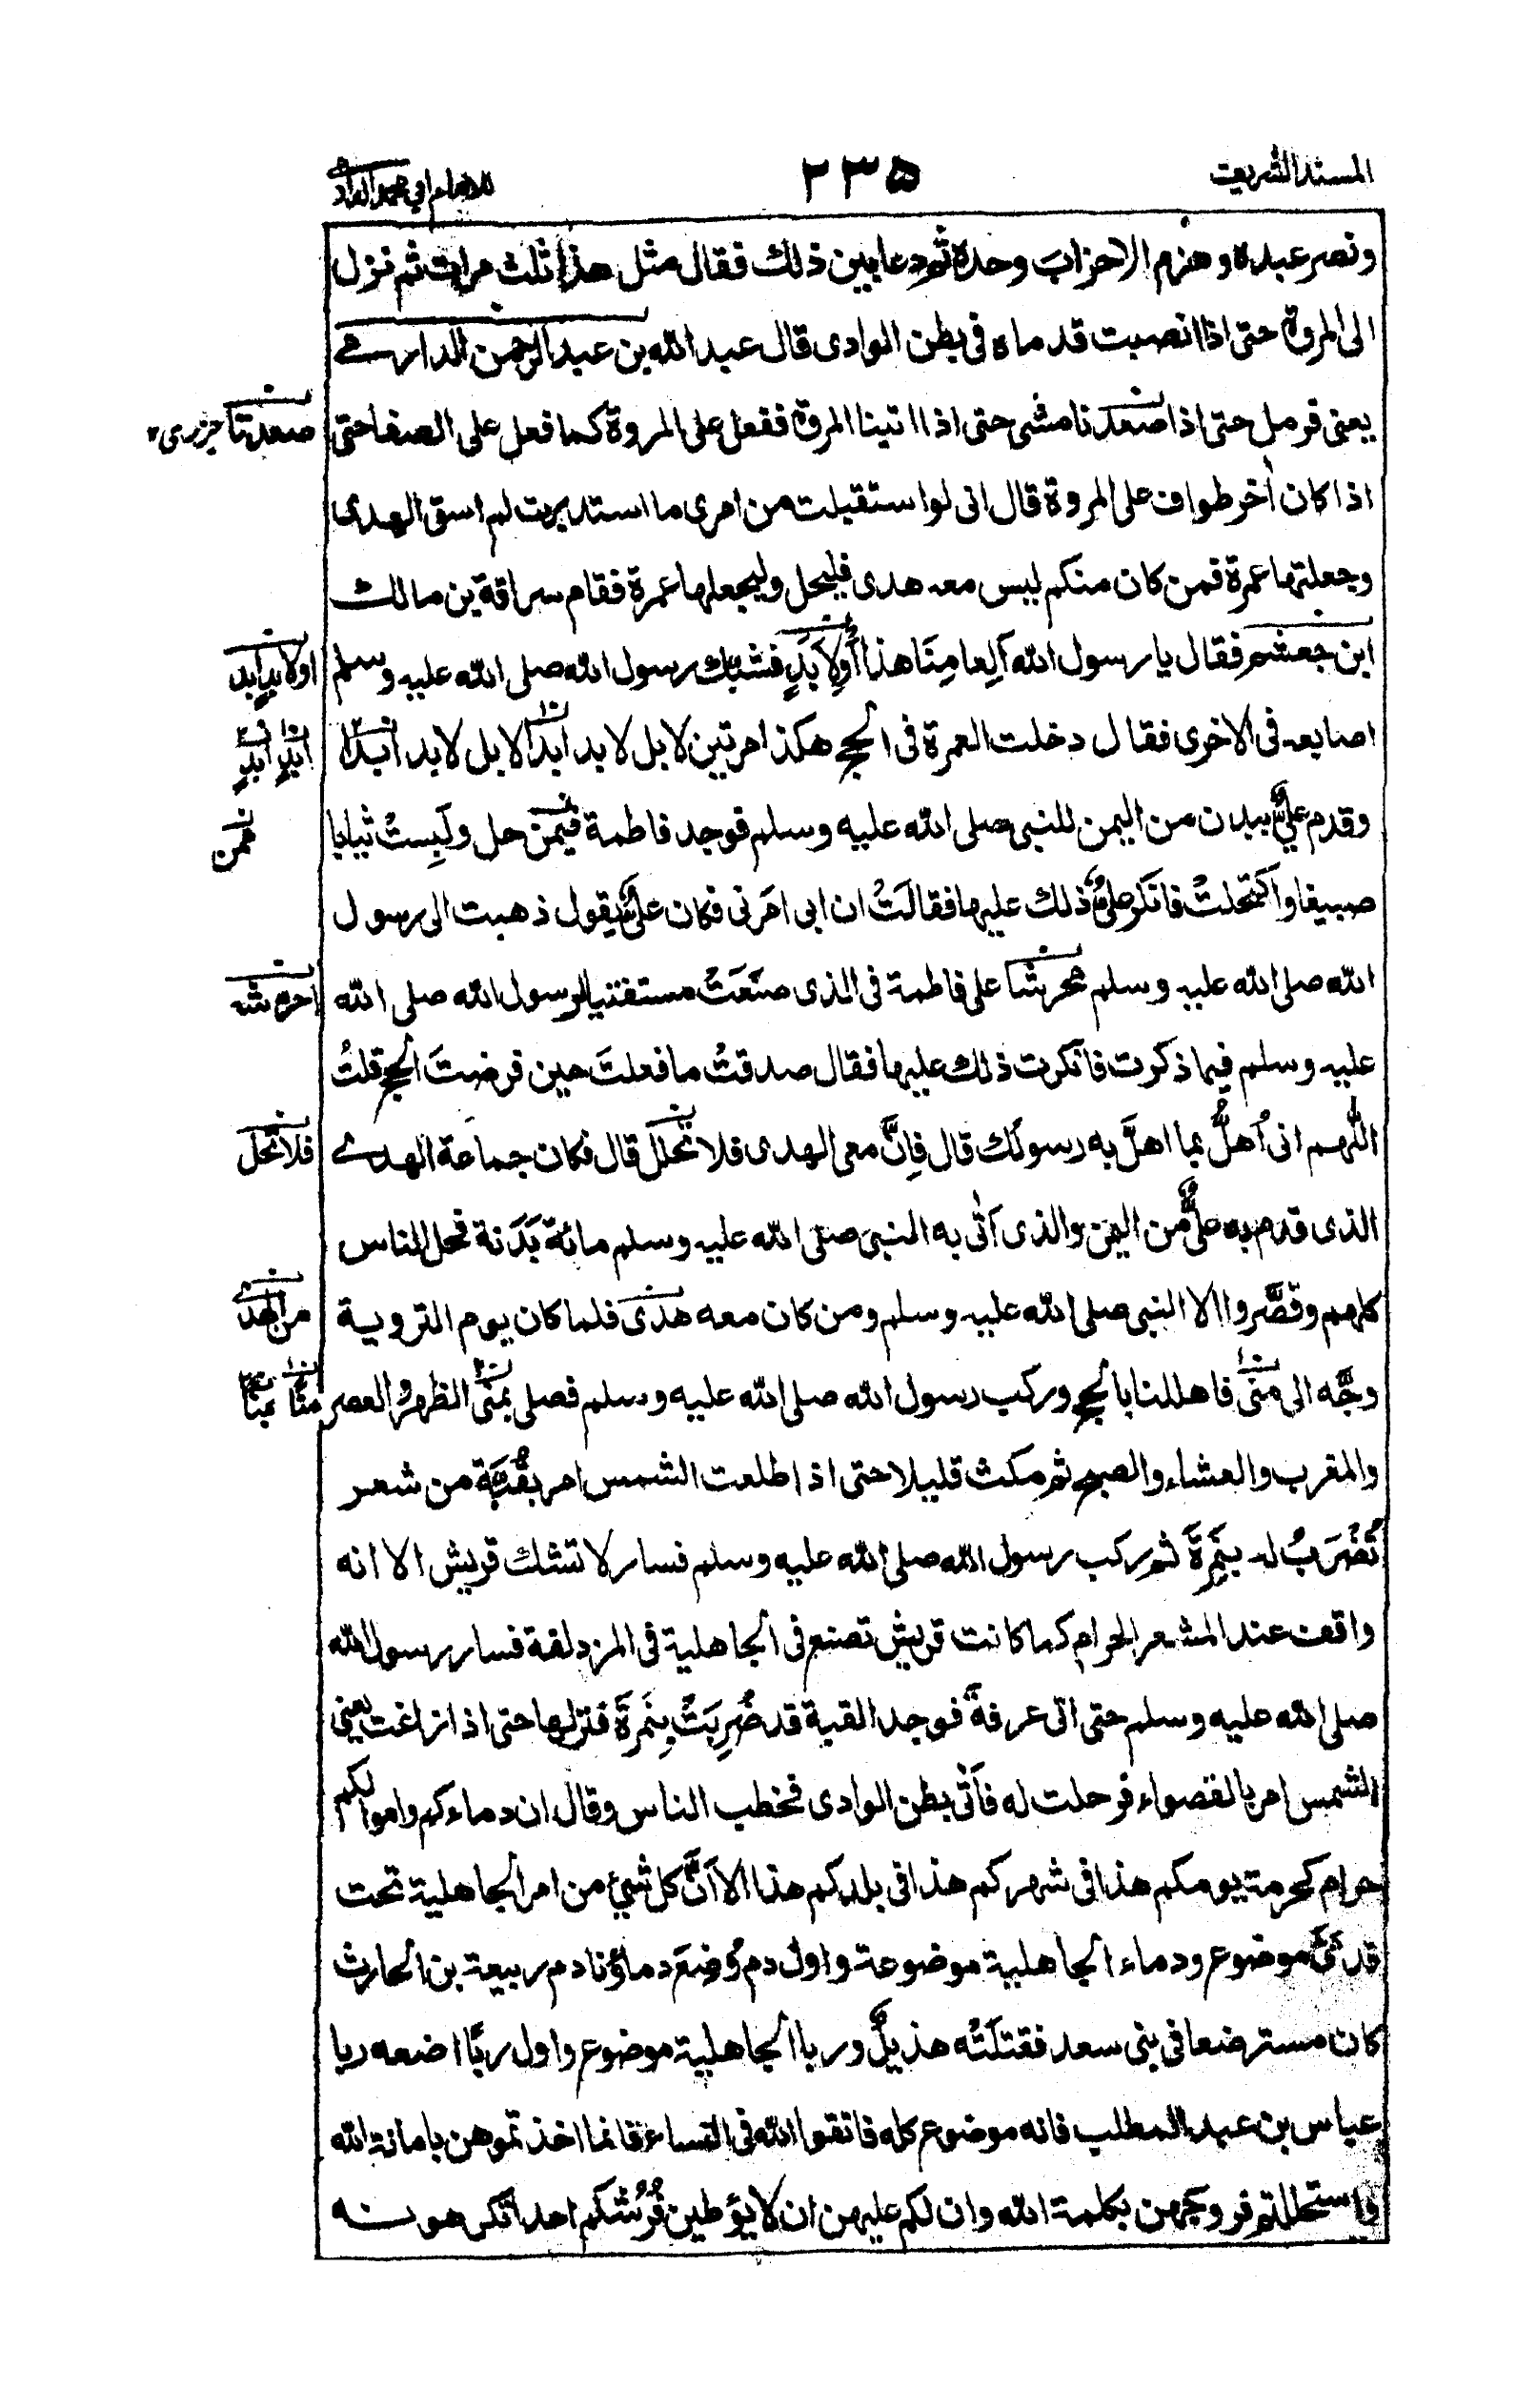 المسند الشريف ٢٣٥ للامام ابي محمد الدارمي
ونصر عبده وهزم الاحزاب وحده ثم دعا بين ذلك فقال مثل هذا ثلث مرات ثم نزل
الى المروة حتى اذا انصبت قدماه فى بطن الوادى قال عبد الله بن عبد الرحمن الدارمے
يعنى فرمل حتى اذا صعدنا مشى حتى اذا اتينا المروة ففعل على المروة كما فعل على الصفا حتى
صعدتا جزرى
اذا كان اٰخر طواف على المروة قال انى لو استقبلت من امرى ما استدبرت لم اسق الهدى
وجعلتها عمرة فمن كان منكم ليس معه هدى فليحل وليجعلها عمرة فقام سراقة بن مالك
ابن جعشم فقال يا رسول الله اَلِعامِنَا هذا اَوْلِاَبَدٍ فشبك رسول الله صلى الله عليه وسلم
اولابدِ ابد
اصابعه فى الاخرى فقال دخلت العمرة فى الحج هكذا مرتين لا بل لابد ابدا لا بل لابد ابدا
ابدٍ ابدٍ
وقدم علىٌّ ببدن من اليمن للنبى صلى الله عليه وسلم فوجد فاطمة فيمن حل ولَبِسَتْ ثيابا
ممن
صبيغا واكتحلتْ فانكر علىٌّ ذلك عليها فقالَتْ ان ابى امَرنى فكان علىٌّ يقول ذهبت الى رسول
الله صلى الله عليه وسلم محرشا على فاطمة فى الذى صنَعَتْ مستفتيا لرسول الله صلى الله
احرشه
عليه وسلم فيما ذكرت فانكرت ذلك عليها فقال صدقتْ ما فعلتَ حين فرضتَ الحج قلتُ
اللهم انى اُهلُّ بما اهلَّ به رسولك قال فاِنَّ معى الهدى فلا تحلل قال فكان جماعة الهدے
فلا تحل
الذى قدم به علىٌّ من اليمن والذى اَتٰى به النبى صلى الله عليه وسلم مائة بَدَنة فحل الناس
كلهم وقصَّروا الا النبى صلى الله عليه وسلم ومن كان معه هدى فلما كان يوم التروية
من الهدى
وجَّه الى منى فاهللنا بالحج وركب رسول الله صلى الله عليه وسلم فصلى بمنى الظهر والعصر
منًا بمنًا
والمغرب والعشاء والصبح ثم مكث قليلا حتى اذا طلعت الشمس امر بقُبَّة من شعر
تُضْرَبُ له بنَمِرَةَ ثم ركب رسول الله صلى الله عليه وسلم فسار لا تشك قريش الا انه
واقف عند المشعر الحرام كما كانت قريش تصنع فى الجاهلية فى المزدلفة فسار رسول الله
صلى الله عليه وسلم حتى اتى عرفة فوجد القبة قد ضُرِبَتْ بِنَمِرَةَ فنزلها حتى اذا زاغت يعنى
الشمس امر بالقصواء فرحلت له فاَتٰى بطن الوادى فخطب الناس وقال ان دماءكم واموالكم
حرام كحرمة يومكم هذا فى شهركم هذا فى بلدكم هذا الا اَنَّ كل شئ من امر الجاهلية تحت
قدمَىَّ موضوع ودماء الجاهلية موضوعة واول دم وُضِعَ دماؤنا دم ربيعة بن الحارث
كان مسترضعا فى بنى سعد فقتلَتْه هذيلٌ وربا الجاهلية موضوع واول ربًا اضعه ربا
عباس بن عبد المطلب فانه موضوع كله فاتقوا الله فى النساء فانما اخذتموهن بامانة الله
واستحللتم فروجهن بكلمة الله وان لكم عليهن ان لا يؤطين فُرُشكم احدا تكرهونه